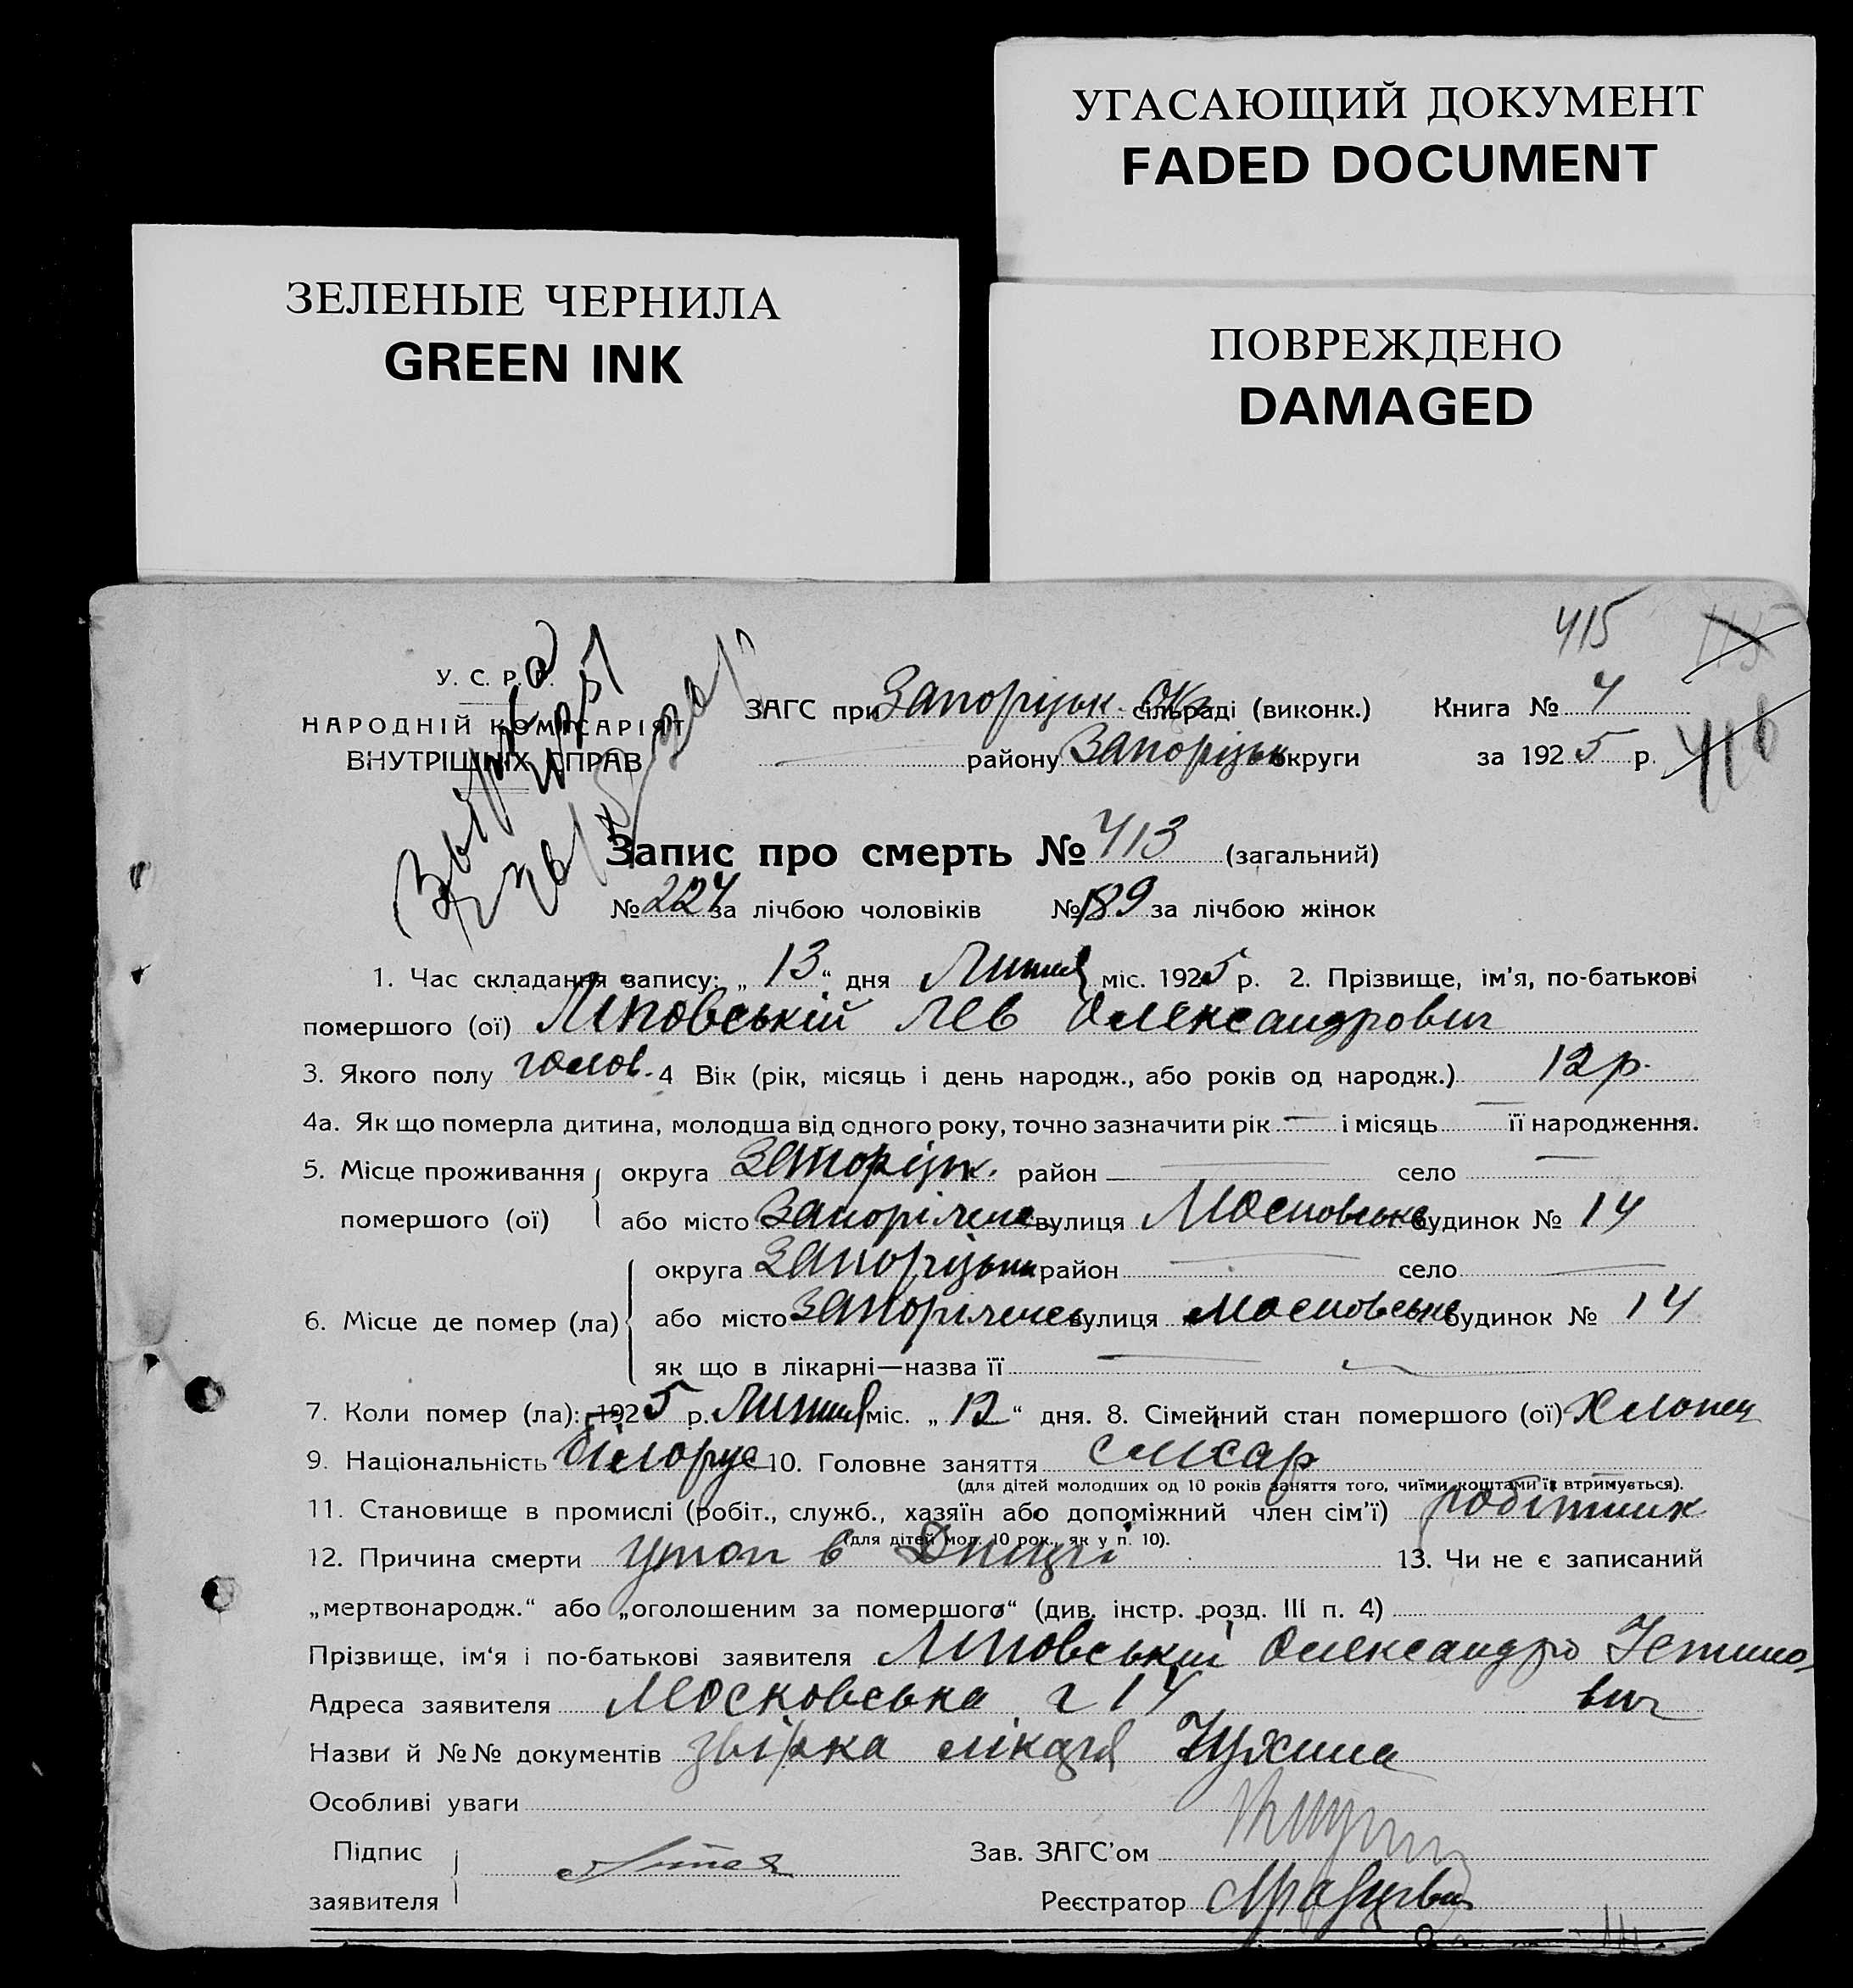 УГАСАЮЩИЙ ДОКУМЕНТ
FADED DOCUMENT
ЗЕЛЕНЫЕ ЧЕРНИЛА
GREEN INK
ПОВРЕЖДЕНО
DAMAGED
415
У. С. Р. Р.
НАРОДНІЙ КОМІСАРІЯТ
ВНУТРІШНІХ СПРАВ
ЗАГС при Запоріцьк. Окр сільраді (виконк.) Книга № 4
району Запоріцьк округи за 1925 р. 416
Запис про смерть № 413 (загальний)
№ 224 за лічбою чоловіків № 189 за лічбою жінок
1. Час складання запису: „13“ дня Липня міс. 1925 р. 2. Прізвище, ім'я, по-батькові
помершого (ої) Ліповській Лев Олександрович
3. Якого полу чолов. 4 Вік (рік, місяць і день народж., або років од народж.) 12 р.
4а. Як що померла дитина, молодша від одного року, точно зазначити рік — і місяць — її народження.
5. Місце проживання округа Запоріцьк. район — село —
помершого (ої) або місто Запоріжжє вулиця Московська будинок № 14
округа Запоріцьк район — село —
6. Місце де помер (ла) або місто Запоріжжє вулиця Московська будинок № 14
як що в лікарні—назва її —
7. Коли помер (ла): 1925 р. Липня міс. „12“ дня. 8. Сімейний стан помершого (ої) Хлопец
9. Національність білорус 10. Головне заняття слюсар
(для дітей молодших од 10 років заняття того, чиїми коштами її втримується).
11. Становище в промислі (робіт., служб., хазяїн або допоміжний член сім'ї) робітник
(для дітей мол. 10 рок., як у п. 10).
12. Причина смерти утоп в Дніпрі 13. Чи не є записаний
„мертвонародж.“ або „оголошеним за помершого“ (див. інстр. розд. III п. 4)
Прізвище, ім'я і по-батькові заявителя Ліповській Олександр Устино-
Адреса заявителя Московська 14 вич
Назви й №№ документів звістка лікаря
Особливі уваги
Підпис
заявителя
Зав. ЗАГС'ом
Реєстратор